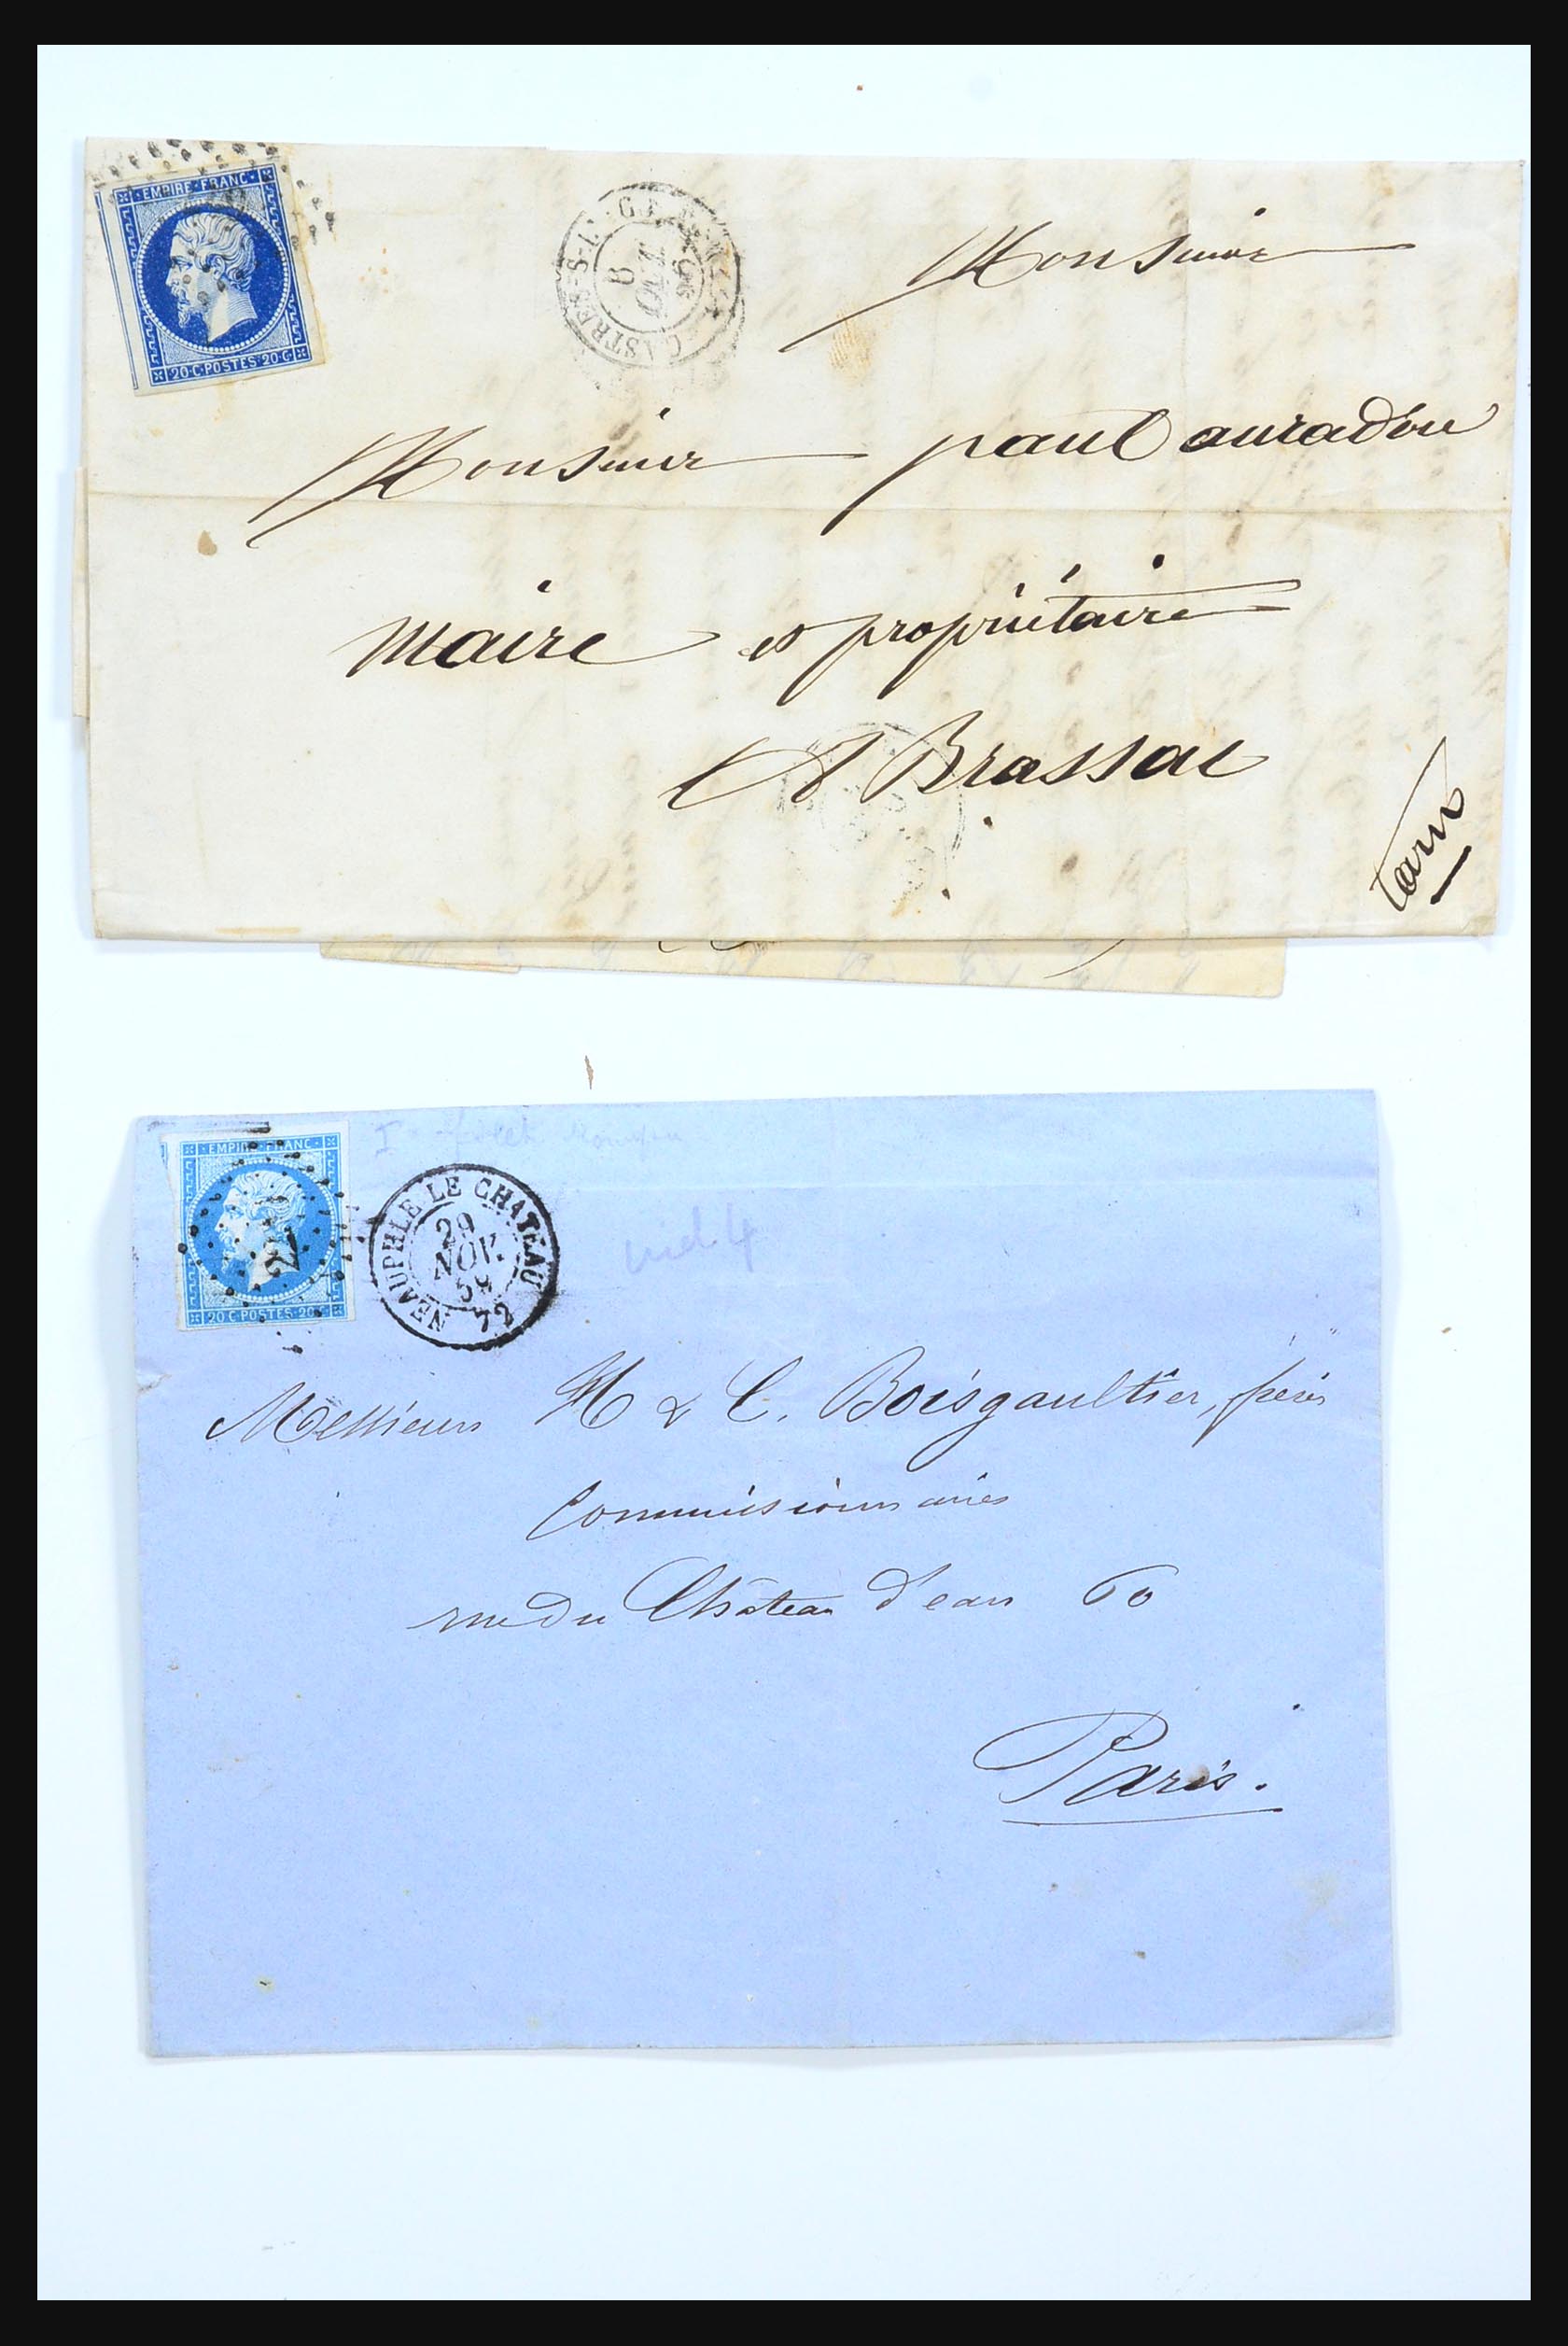 EMPIRE · FRANC ·
20 · C · POSTES · 20 · C
CASTRES-S-L'
8
OCT
Monsieur
Monsieur paul auradou
Maire et propriétaire
A Brassac
tarn
EMPIRE FRANC ·
20 · C · POSTES · 20 · C
NEAUPHLE LE CHATEAU
29
NOV.
59
72
ind. 4
Messieurs H & C. Boisgaultier, frères
Commissionnaires
rue du Château d'eau 60
Paris.